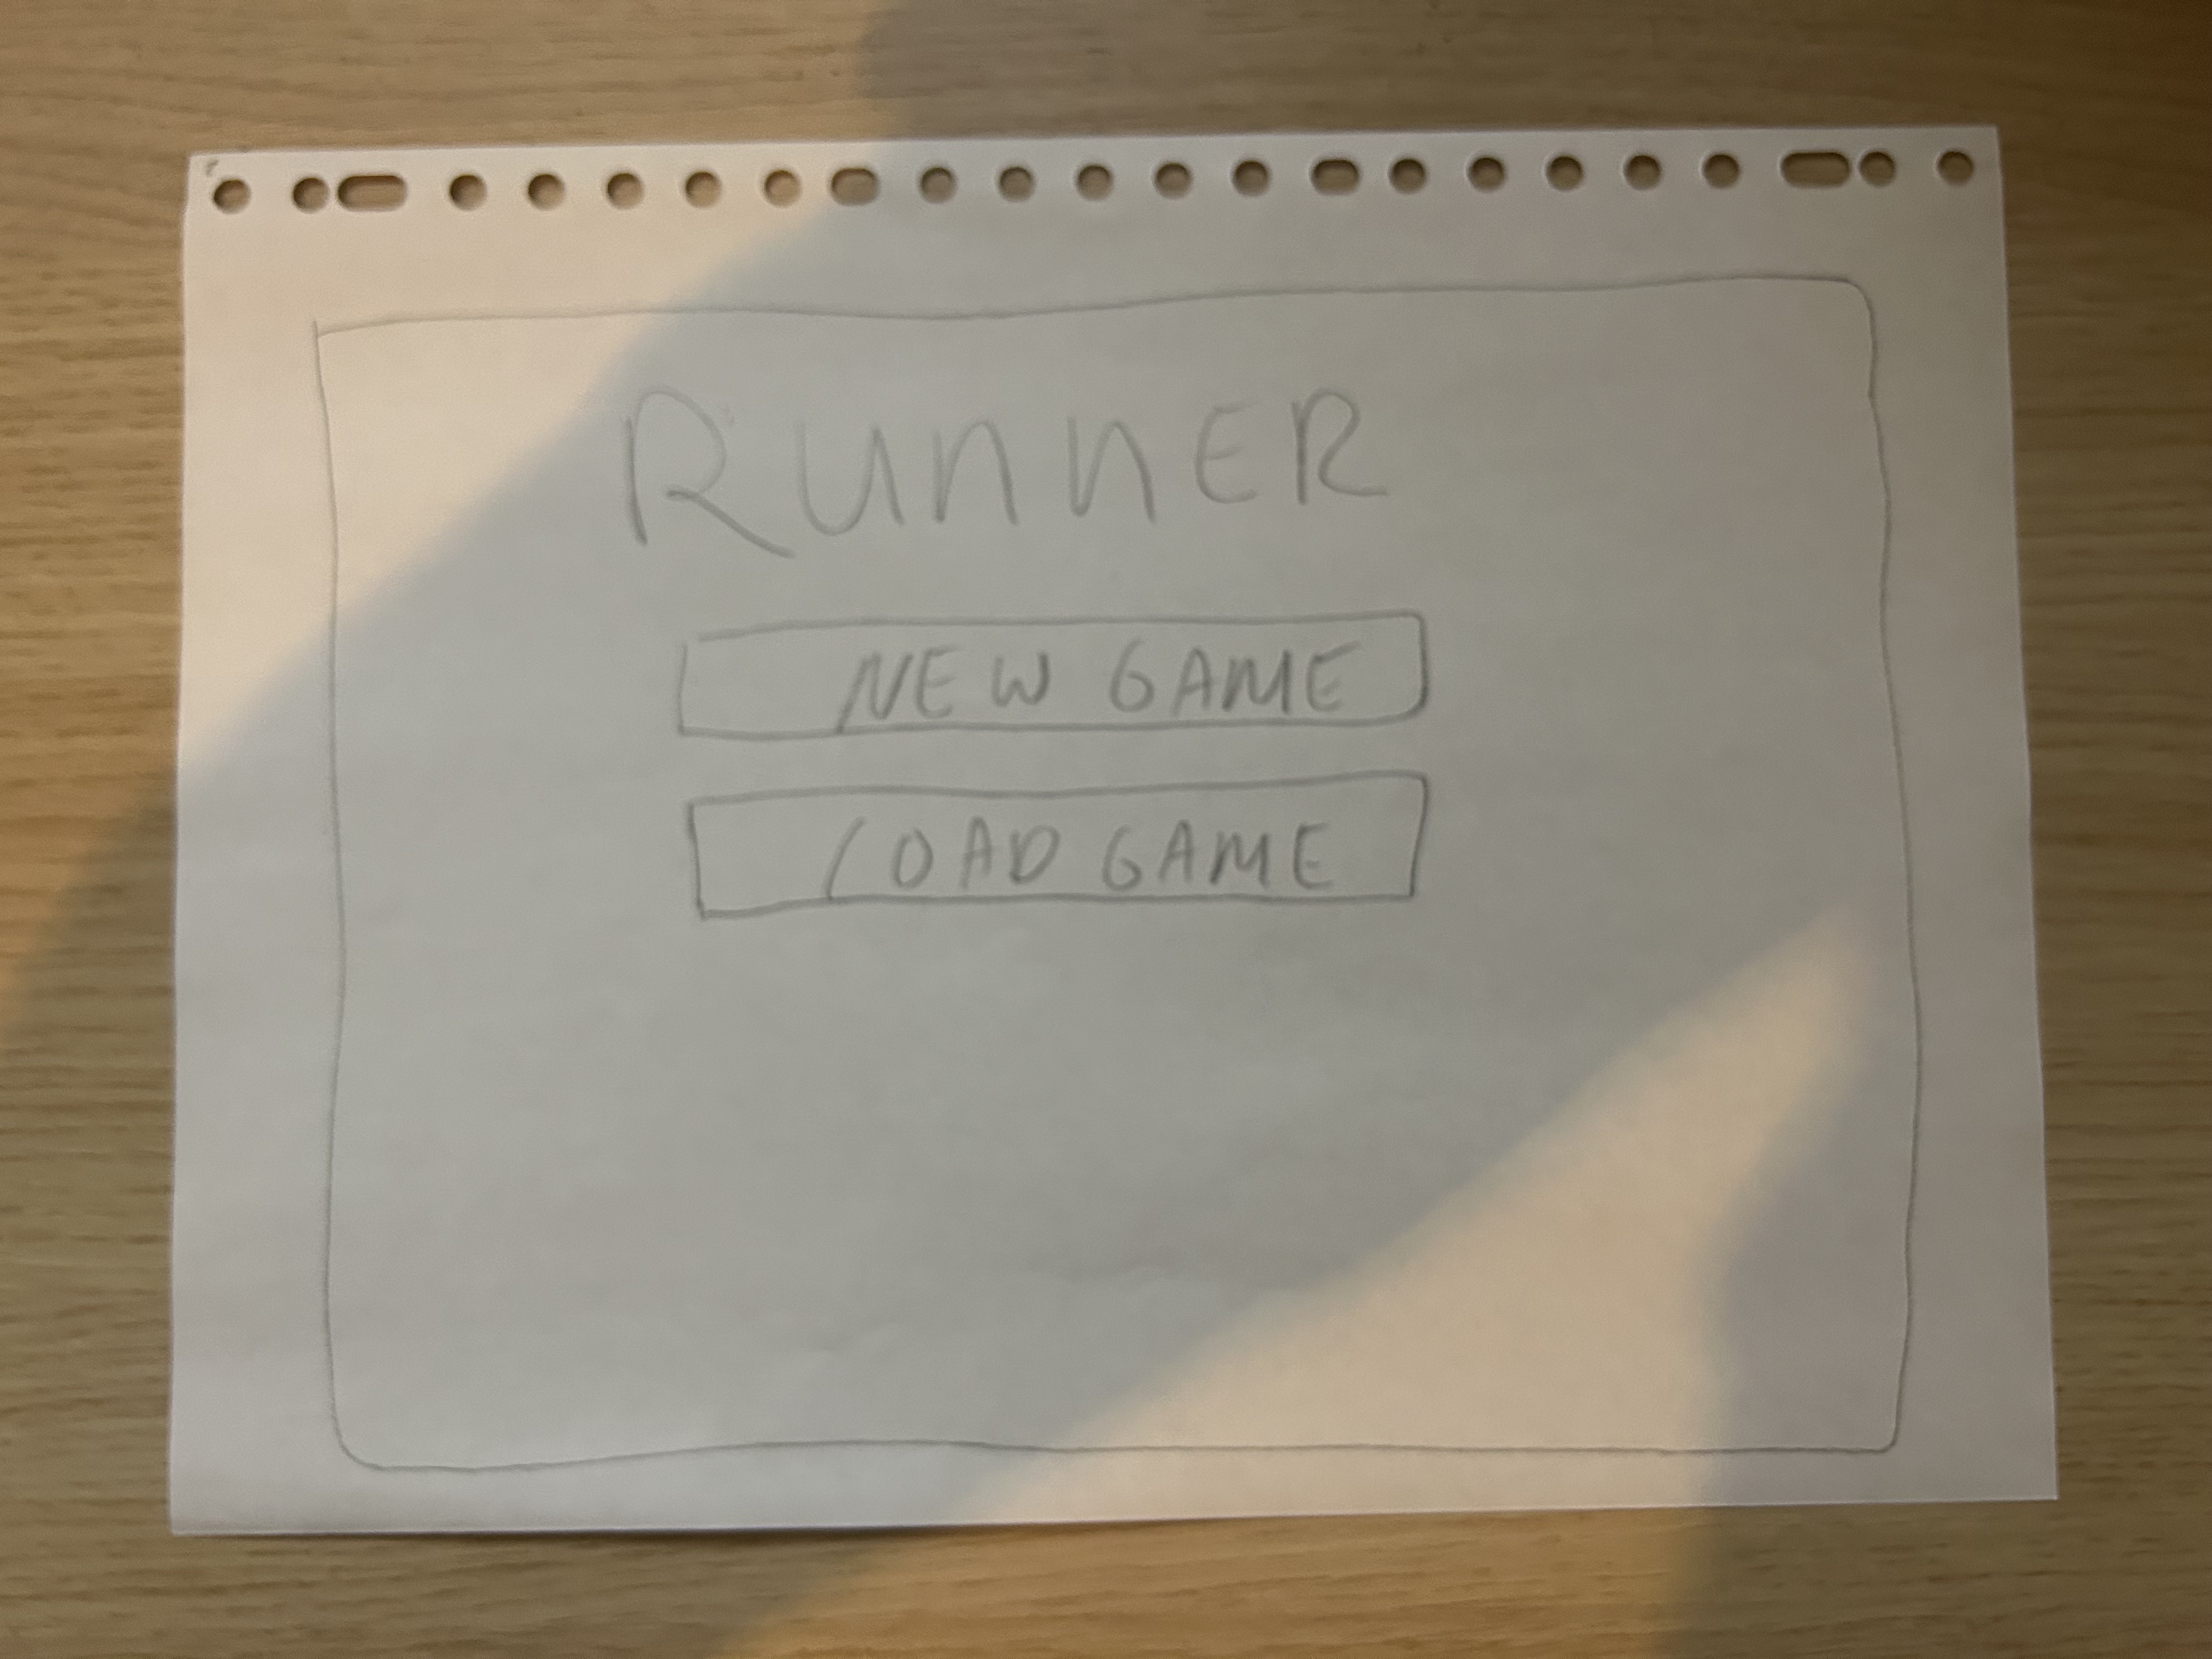 RUNNER
NEW GAME
LOAD GAME